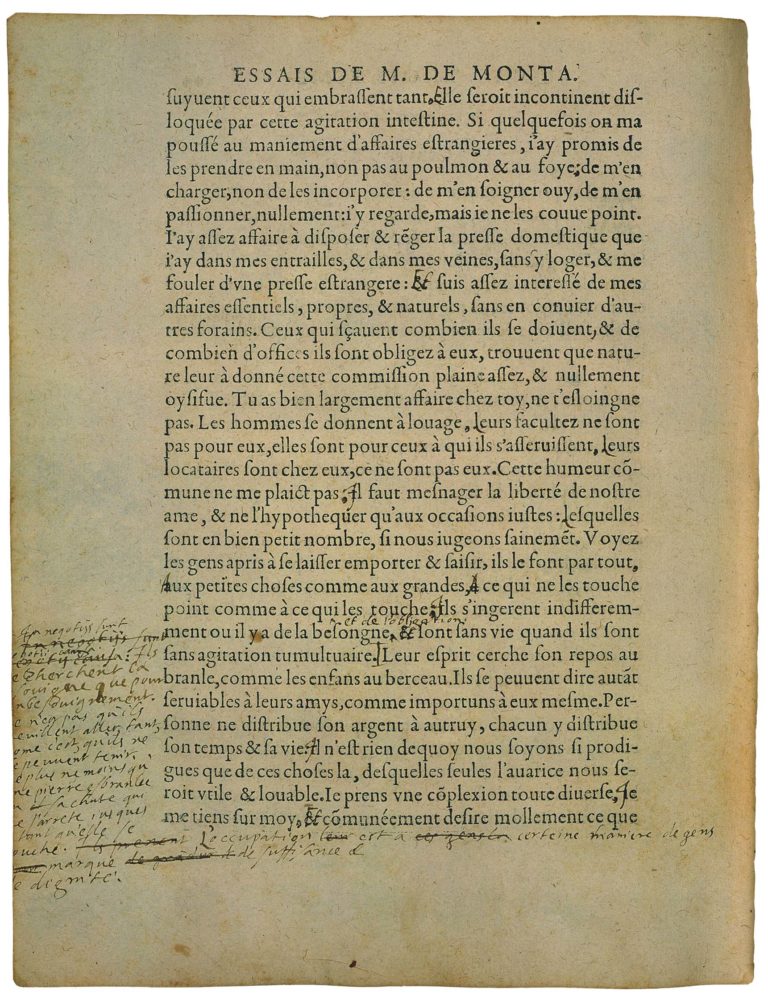 ESSAIS DE M. DE MONTA.
suyuent ceux qui embrassent tant. Elle seroit incontinent dis-
loquée par cette agitation intestine. Si quelquefois on ma
poussé au maniement d'affaires estrangieres, i'ay promis de
les prendre en main, non pas au poulmon & au foye; de m'en
charger, non de les incorporer: de m'en soigner ouy, de m'en
passionner, nullement: i'y regarde, mais ie ne les couue point.
I'ay assez affaire à disposer & rēger la presse domestique que
i'ay dans mes entrailles, & dans mes veines, sans y loger, & me
fouler d'vne presse estrangere: Et suis assez interessé de mes
affaires essentiels, propres, & naturels, sans en conuier d'au-
tres forains. Ceux qui sçauent combien ils se doiuent, & de
combien d'offices ils sont obligez à eux, trouuent que natu-
re leur à donné cette commission plaine assez, & nullement
oysifue. Tu as bien largement affaire chez toy, ne t'esloingne
pas. Les hommes se donnent à louage, Leurs facultez ne sont
pas pour eux, elles sont pour ceux à qui ils s'asseruissent, Leurs
locataires sont chez eux, ce ne sont pas eux. Cette humeur cō-
mune ne me plaict pas. Il faut mesnager la liberté de nostre
ame, & ne l'hypothequer qu'aux occasions iustes: Lesquelles
sont en bien petit nombre, si nous iugeons sainemēt. Voyez
les gens apris à se laisser emporter & saisir, ils le font par tout,
Aux petites choses comme aux grandes, A ce qui ne les touche
point comme à ce qui les touche. Ils s'ingerent indifferem-
et de l'obligation
ment ou il y a de la besongne, & sont sans vie quand ils sont
sans agitation tumultuaire. Leur esprit cerche son repos au
branle, comme les enfans au berceau. Ils se peuuent dire autāt
seruiables à leurs amys, comme importuns à eux mesme. Per-
sonne ne distribue son argent à autruy, chacun y distribue
son temps & sa vie. Il n'est rien dequoy nous soyons si prodi-
gues que de ces choses la, desquelles seules l'auarice nous se-
roit vtile & louable. Ie prens vne cōplexion toute diuerse, Ie
me tiens sur moy, Et cōmunéement desire mollement ce que
negotiis sunt
In negotiis sunt
causa: Ils
cherchent la
que pour
enbesouignement.
n'est pas qu'ils
veuillent aller tant
come c'est qu'ils ne
peuuent tenir.
plus ne moins qu'
pierre esbranlee
sa chute qui
s'arrete iusques
qu'elle se
couche. L'occupation est a certeine maniere de gens
marque de suffisance &
de dignité.